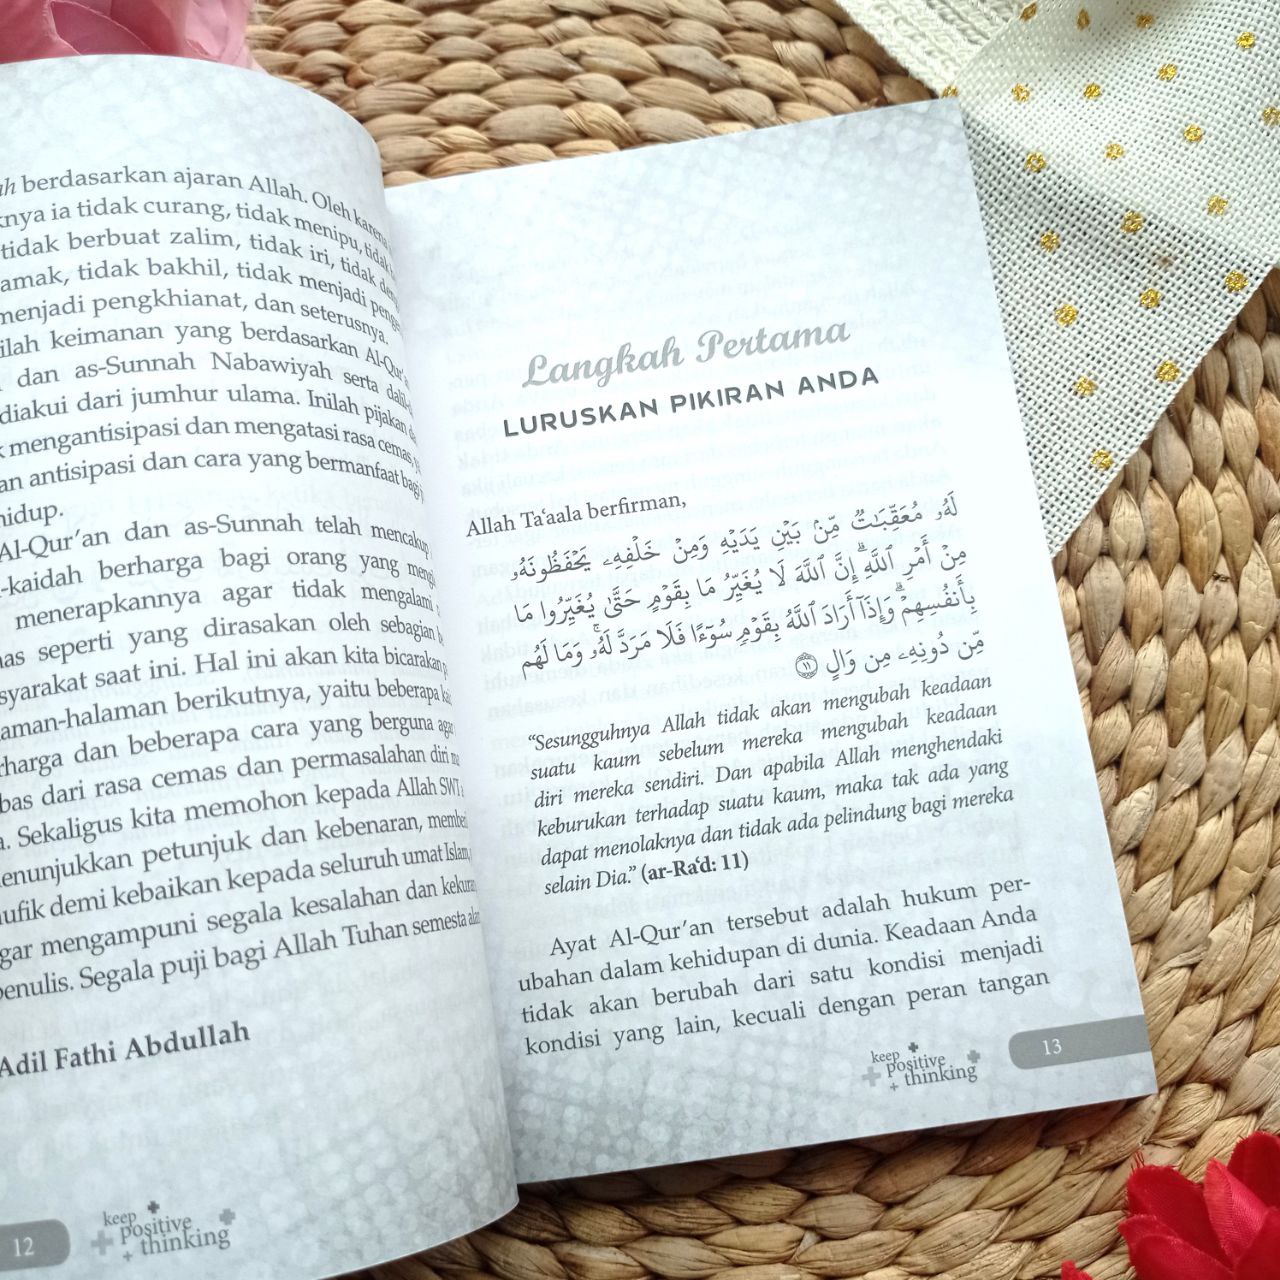 berdasarkan ajaran Allah. Oleh karena
ia tidak curang, tidak menipu, tidak
tidak berbuat zalim, tidak iri, tidak
tidak bakhil, tidak menjadi
menjadi pengkhianat, dan seterusnya.
keimanan yang berdasarkan Al-Qur'a
dan as-Sunnah Nabawiyah serta
diakui dari jumhur ulama. Inilah pijakan
mengantisipasi dan mengatasi rasa cemas,
antisipasi dan cara yang bermanfaat bagi
hidup.
Al-Qur'an dan as-Sunnah telah mencakup
-kaidah berharga bagi orang yang
menerapkannya agar tidak mengalami
seperti yang dirasakan oleh sebagian
saat ini. Hal ini akan kita bicarakan
aman-halaman berikutnya, yaitu beberapa
dan beberapa cara yang berguna
dari rasa cemas dan permasalahan diri
Sekaligus kita memohon kepada Allah SWT
menunjukkan petunjuk dan kebenaran,
ufik demi kebaikan kepada seluruh umat Islam,
mengampuni segala kesalahan dan
penulis. Segala puji bagi Allah Tuhan semesta
Adil Fathi Abdullah
12
keep
positive
thinking
Langkah Pertama
LURUSKAN PIKIRAN ANDA
Allah Ta‘aala berfirman,
لَهُۥ مُعَقِّبَٰتٌ مِّنۢ بَيْنِ يَدَيْهِ وَمِنْ خَلْفِهِۦ يَحْفَظُونَهُۥ
مِنْ أَمْرِ ٱللَّهِۗ إِنَّ ٱللَّهَ لَا يُغَيِّرُ مَا بِقَوْمٍ حَتَّىٰ يُغَيِّرُوا۟ مَا
بِأَنفُسِهِمْۗ وَإِذَآ أَرَادَ ٱللَّهُ بِقَوْمٍ سُوٓءًا فَلَا مَرَدَّ لَهُۥۚ وَمَا لَهُم
مِّن دُونِهِۦ مِن وَالٍ ۝١١
“Sesungguhnya Allah tidak akan mengubah keadaan
suatu kaum sebelum mereka mengubah keadaan
diri mereka sendiri. Dan apabila Allah menghendaki
keburukan terhadap suatu kaum, maka tak ada yang
dapat menolaknya dan tidak ada pelindung bagi mereka
selain Dia.” (ar-Ra‘d: 11)
Ayat Al-Qur'an tersebut adalah hukum per-
ubahan dalam kehidupan di dunia. Keadaan Anda
tidak akan berubah dari satu kondisi menjadi
kondisi yang lain, kecuali dengan peran tangan
keep
positive
thinking
13